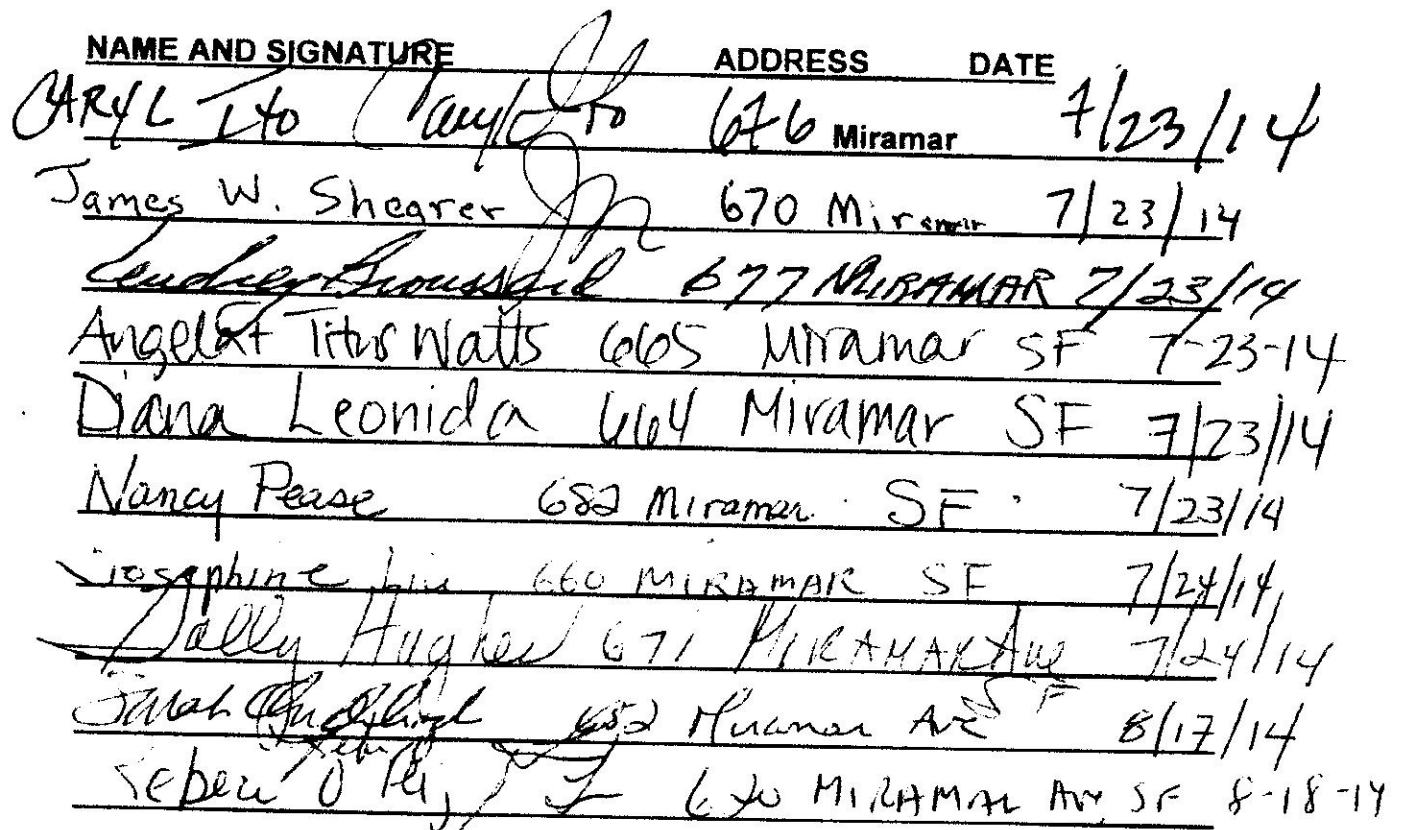 NAME AND SIGNATURE ADDRESS DATE
CARYL Ito Caryl Ito 676 Miramar 7/23/14
James W. Shearer 670 Miramar 7/23/14
Broussard 677 MIRAMAR 7/23/14
Angela + Titus Watts 665 Miramar SF 7-23-14
Diana Leonida 664 Miramar SF 7/23/14
Nancy Pease 682 Miramar. SF. 7/23/14
Josephine Liu 660 MIRAMAR SF 7/24/14
Sally Hughes 671 MIRAMAR Ave SF 7/24/14
Sarah Miramar Ave 8/17/14
MIRAMAR Av, SF 8-18-14